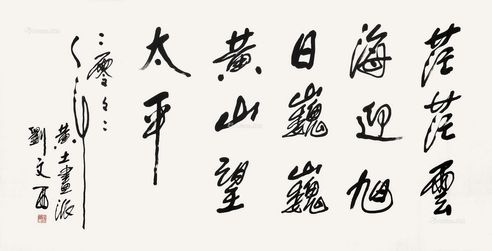 茫茫雲
海迎旭
日巍巍
黄山望
太平
二零
年
黄土畫派
劉文西